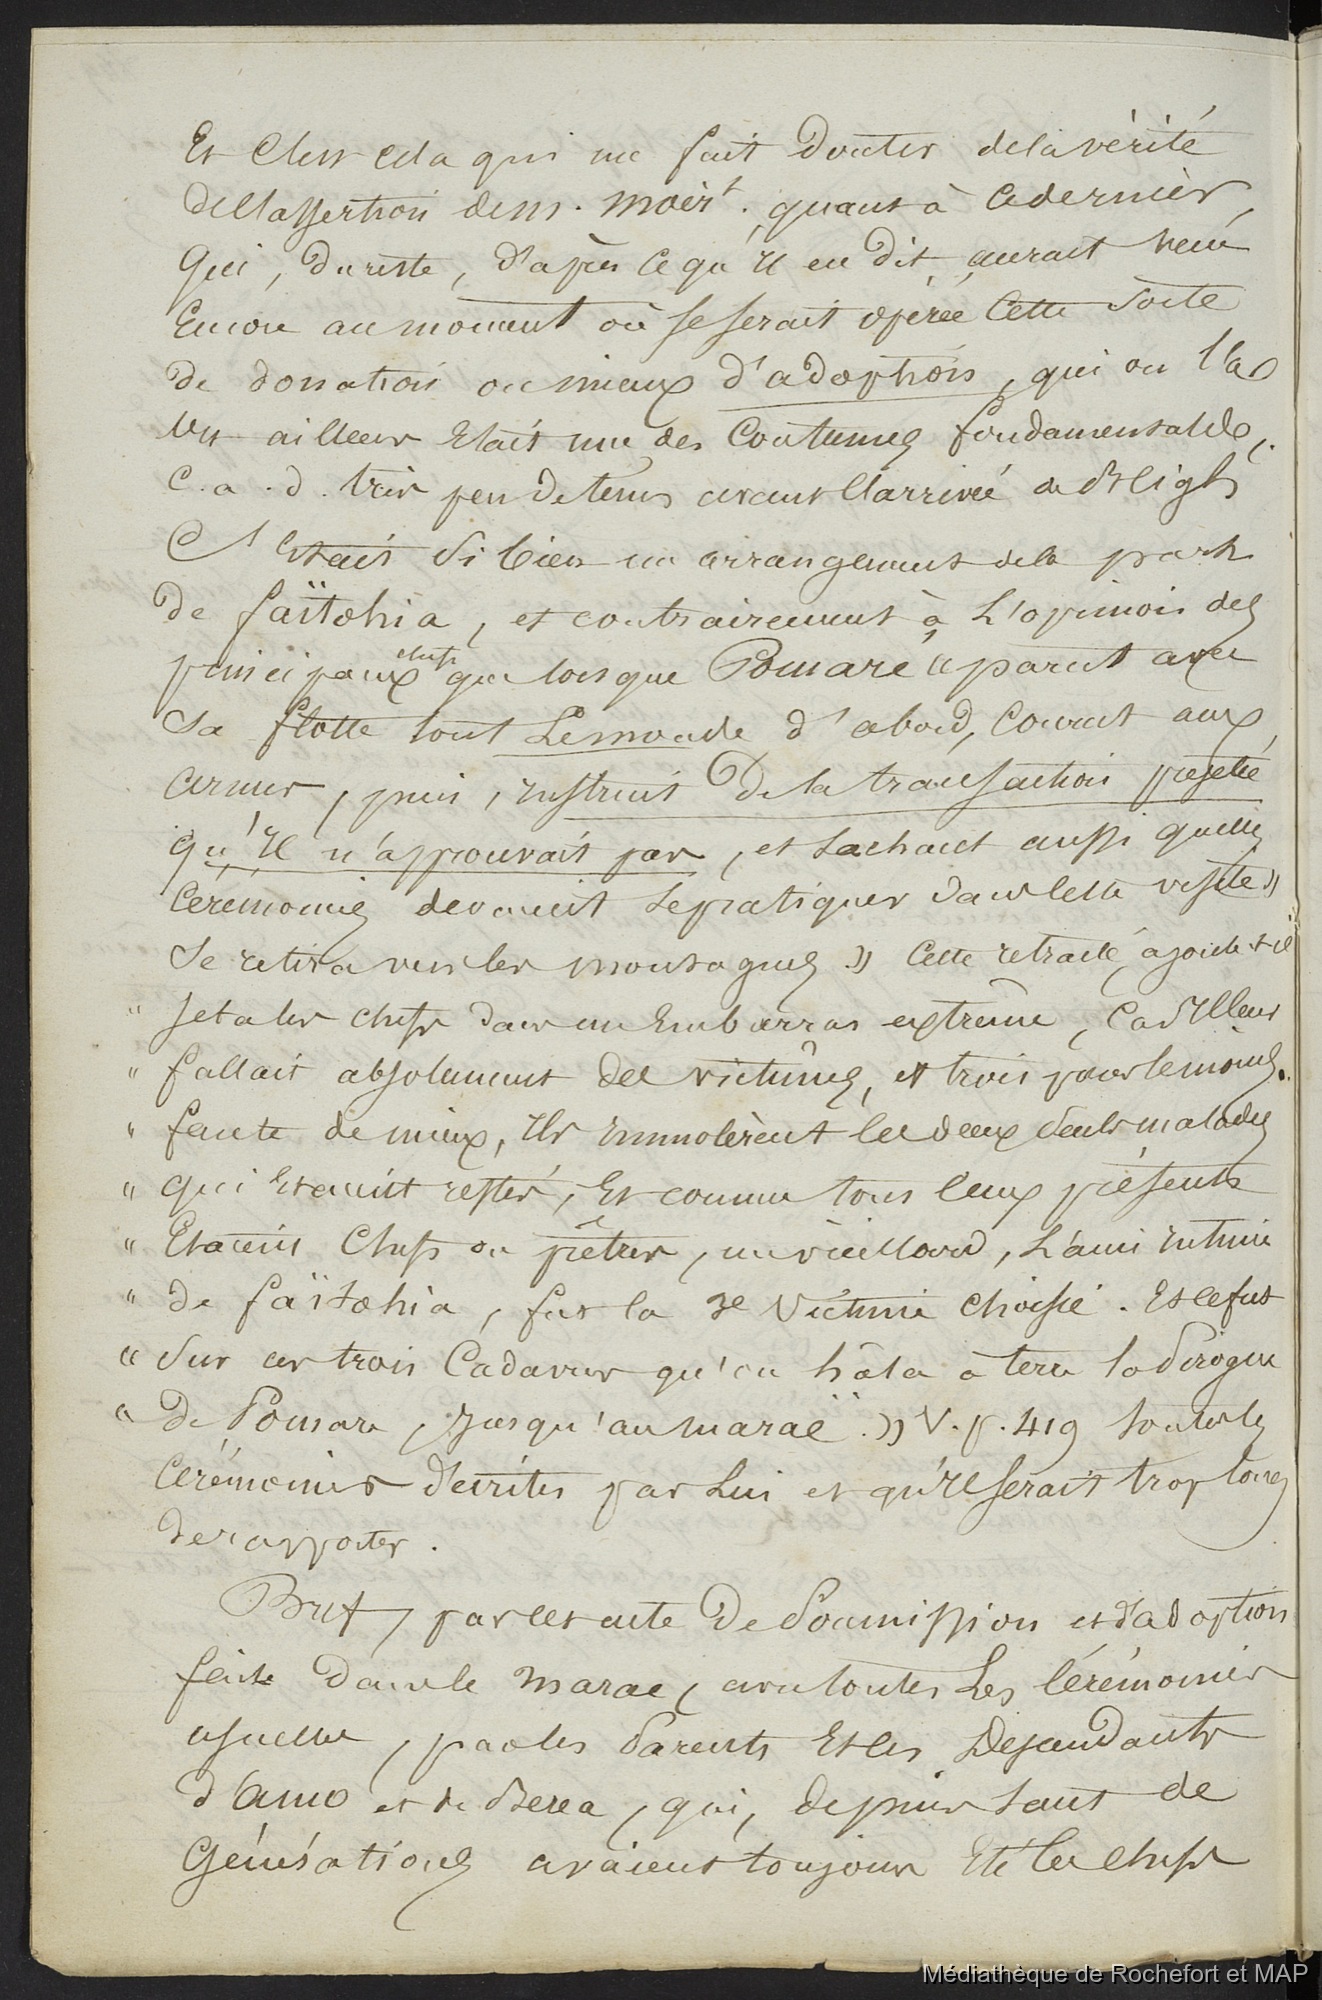 Et c'est cela qui me fait douter de la vérité
de l'assertion de m. Moert. quant à ce dernier,
qui, du reste, d'après ce qu'il en dit, aurait vécu
Encore au moment où se serait opérée cette sorte
de donation ou mieux d'adoption, qui on l'a
vu ailleurs était une des coutumes fondamentales,
c. a. d. très peu de tems avant l'arrivée de Bligh
C'était si bien un arrangement de la part
de faïtohia, et contrairement à l'opinion des
principaux chefs que lorsque Pomaré parut avec
sa flotte tout Le monde d'abord, courut aux
armes, puis, instruit de la transaction projetée
qu'il n'approuvait pas, et sachant aussi quelles
cérémonies devaient se pratiquer dans cette visite »
se retira vers les montagnes » Cette retraite, ajoute-t-il
" jeta les chefs dans un Embarras extrême, Car Il leur
" fallait absolument des victimes, et trois pour le moins.
" faute de mieux, Ils Immolèrent les deux seuls malades
" qui Etaient restés, Et comme tous ceux présents
" Etaient Chefs ou prêtres, un vieillard, L'ami Intime
" de faïtohia, fut la 3e Victime choisie. Et ce fut
" sur ces trois Cadavres qu'on hâla à terre la Pirogue
" de Pomare, Jusqu'au maraë. » V. p. 419 toutes les
Cérémonies décrites par Lui et qu'il serait trop long
de rapporter.
Bref, par cet acte De Soumission et d'adoption
faite dans le marae, avec toutes Les Cérémonies
usuelles, par les Parents Et les Descendants
d'Amo et de Berea, qui, depuis tant de
Générations avaient toujours Eté les chefs
Médiathèque de Rochefort et MAP